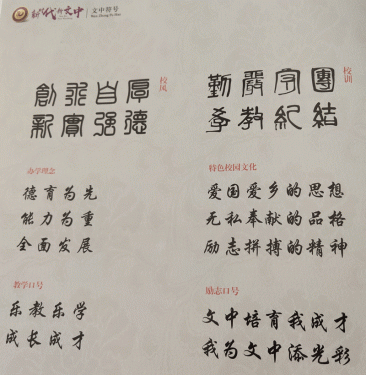 新时代新文中
文中符号
Wen Zhong Fu Hao
校风
厚德
自強
求實
創新
校训
團結
守紀
嚴教
勤学
办学理念
德育为先
能力为重
全面发展
特色校园文化
爱国爱乡的思想
无私奉献的品格
励志拼搏的精神
教学口号
乐教乐学
成长成才
励志口号
文中培育我成才
我为文中添光彩